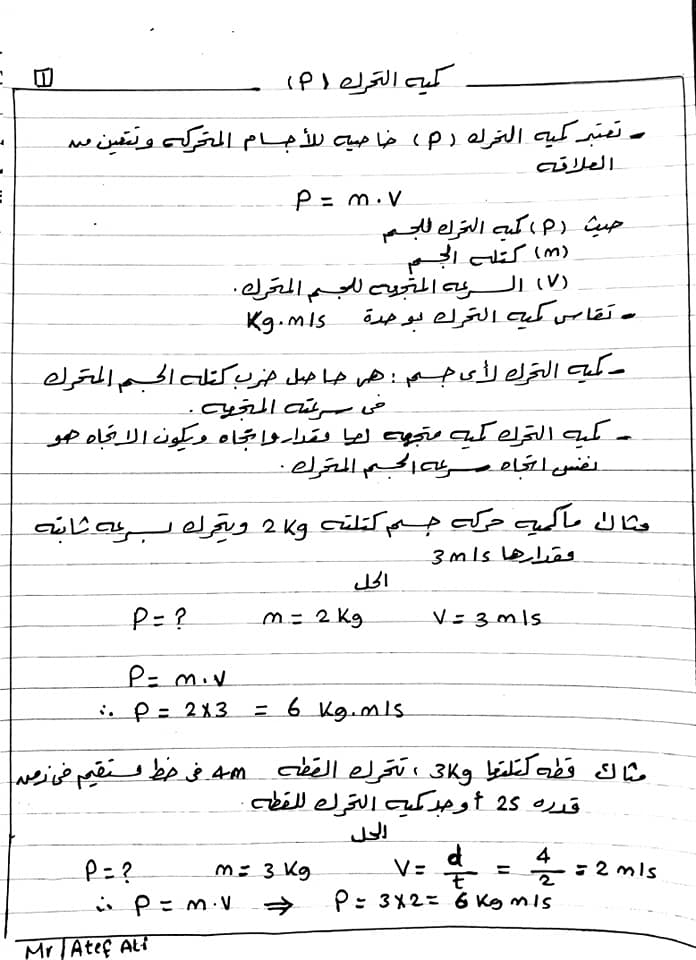 1
كميه التحرك (P)
- تعتبر كميه التحرك (P) خاصيه للأجسام المتحركه وتتعين من
العلاقه
P = m.V
حيث (P) كميه التحرك للجسم
(m) كتله الجسم
(V) السرعه المتجهه للجسم المتحرك.
- تقاس كميه التحرك بوحدة Kg.m/s
- كميه التحرك لأى جسم : هى حاصل ضرب كتله الجسم المتحرك
فى سرعته المتجهه.
- كميه التحرك كميه متجهه لها مقدار واتجاه ويكون الاتجاه هو
نفس اتجاه سرعه الجسم المتحرك.
مثال ماكميه حركه جسم كتلته 2 Kg ويتحرك بسرعه ثابته
مقدارها 3 m/s
الحل
P = ? m = 2 Kg V = 3 m/s
P = m.V
∴ P = 2×3 = 6 Kg.m/s
مثال قطه كتلتها 3Kg ، تتحرك القطه 4m فى خط مستقيم فى زمن
قدره 2S أوجد كميه التحرك للقطه.
الحل
P = ? m = 3 Kg V = d/t = 4/2 = 2 m/s
∴ P = m.V ⇒ P = 3×2 = 6 Kg m/s
Mr / Atef Ali